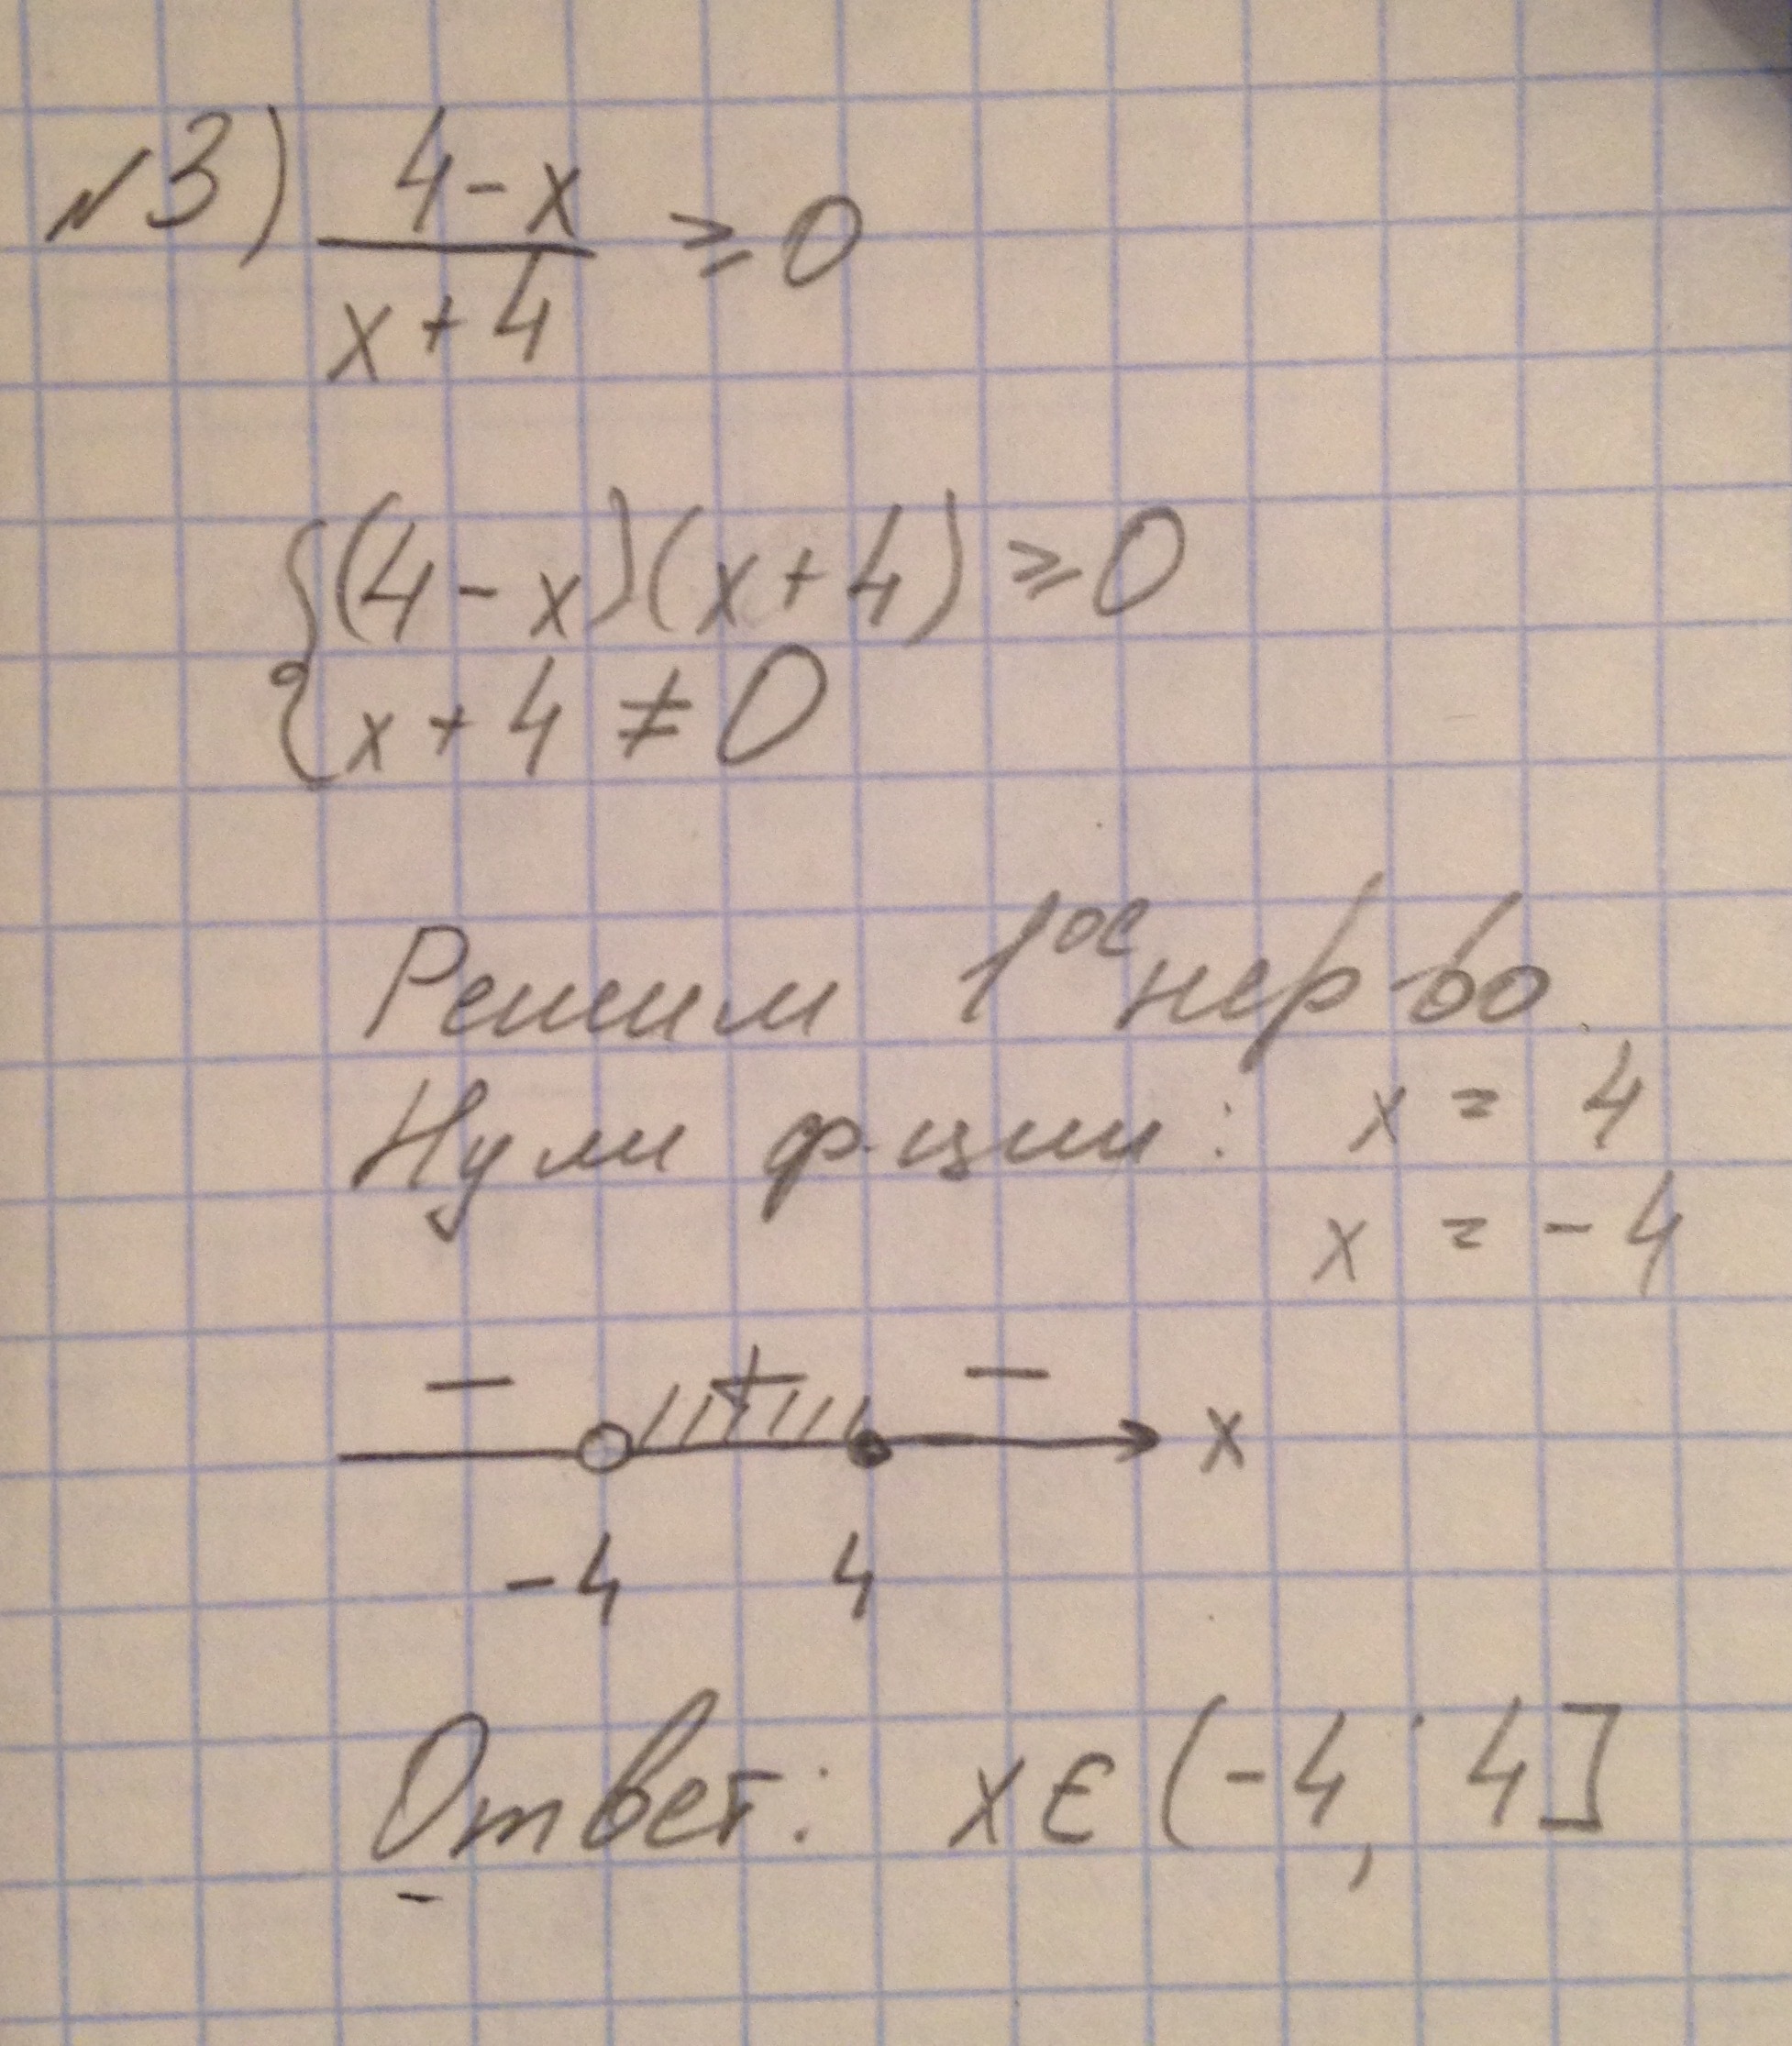 №3) 4-x
≥ 0
x+4
(4-x)(x+4) ≥ 0
x+4 ≠ 0
Решим 1ое нер-во.
Нули ф-ции: x = 4
x = -4
- + - x
-4 4
Ответ: x∈(-4; 4]